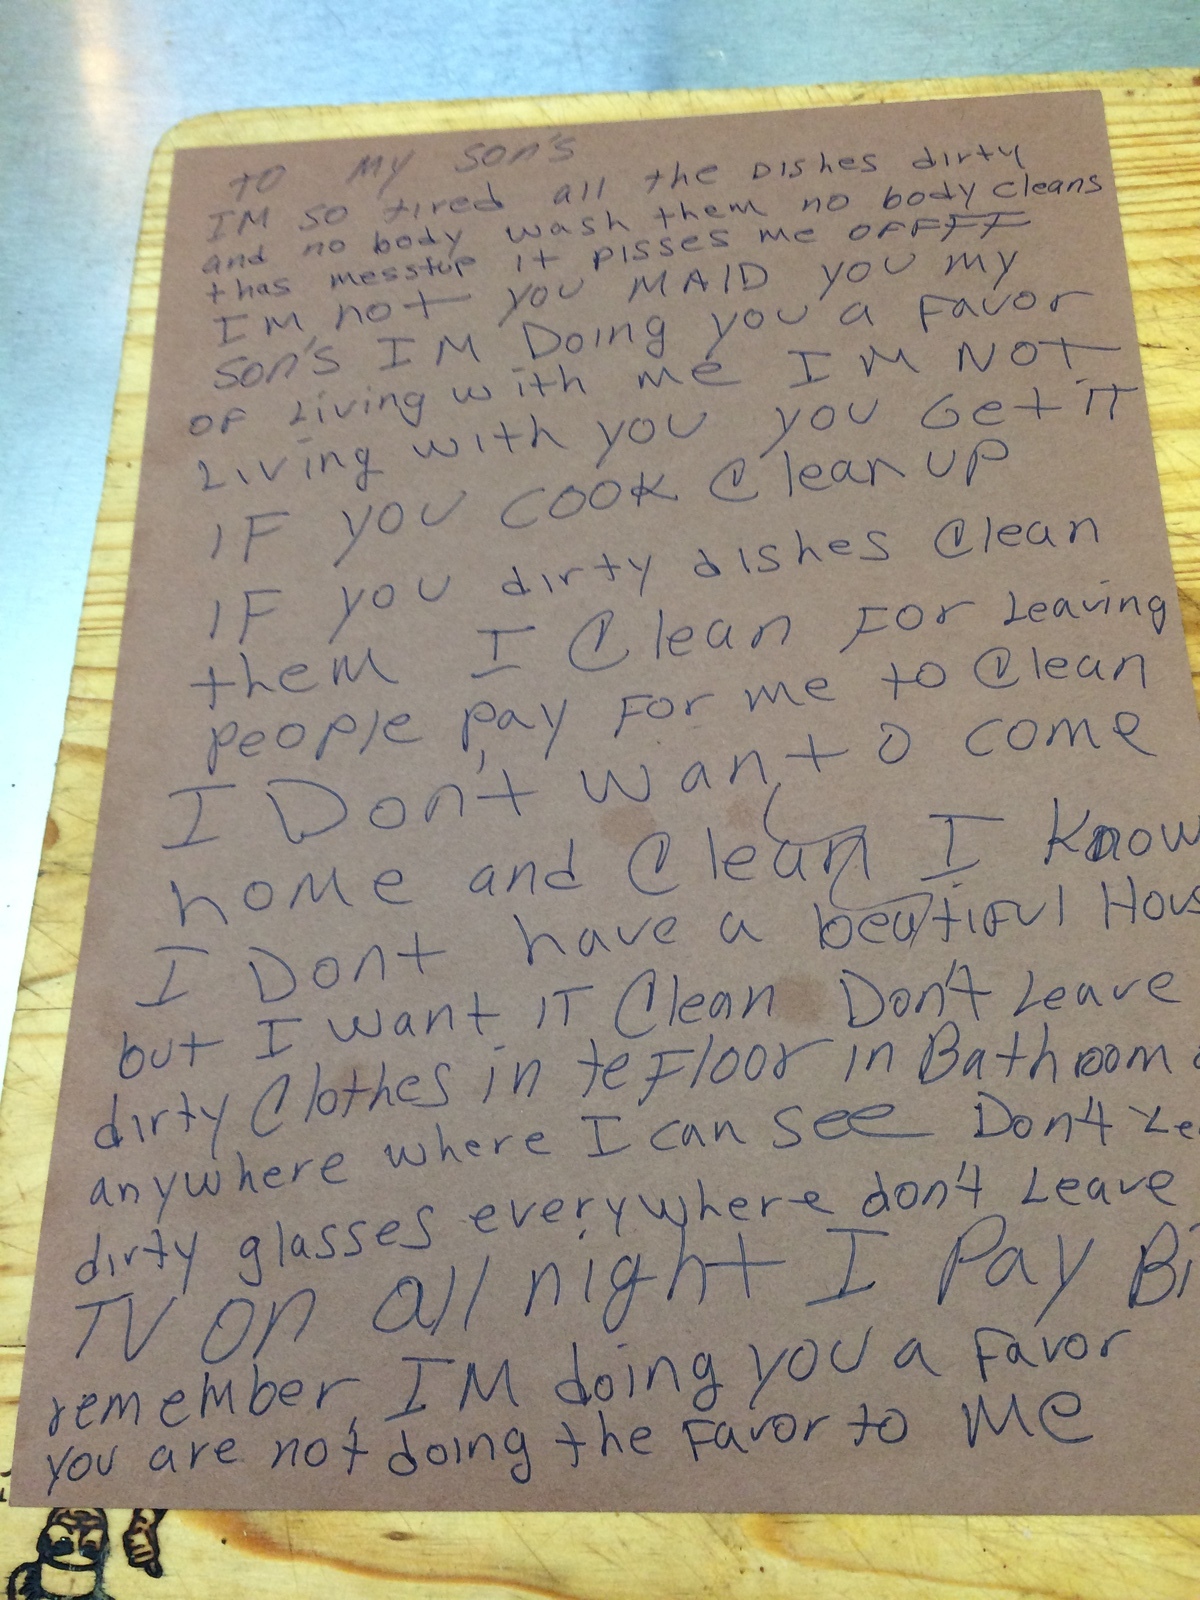 TO MY SON'S
IM SO tired all the DISHES dirty
and no body wash them no body cleans
thas messtup it pisses me OFFFF
IM not you MAID you my
son's IM Doing you a Favor
OF Living with me IM NOT
Living with you you Get iT
IF you COOK Clean UP
IF you dirty dishes Clean
them I Clean FOr Leaving
people pay For me to Clean
I Don't want o come
home and Clean I Know
I Dont have a beatiFul Hous
but I want iT Clean Don't Leave
dirty Clothes in te Floor in Bathroom
anywhere where I can see Don't Lea
dirty glasses everywhere don't Leave
TV on all night I Pay Bi
remember, IM doing you a Favor
you are not doing the Favor to Me